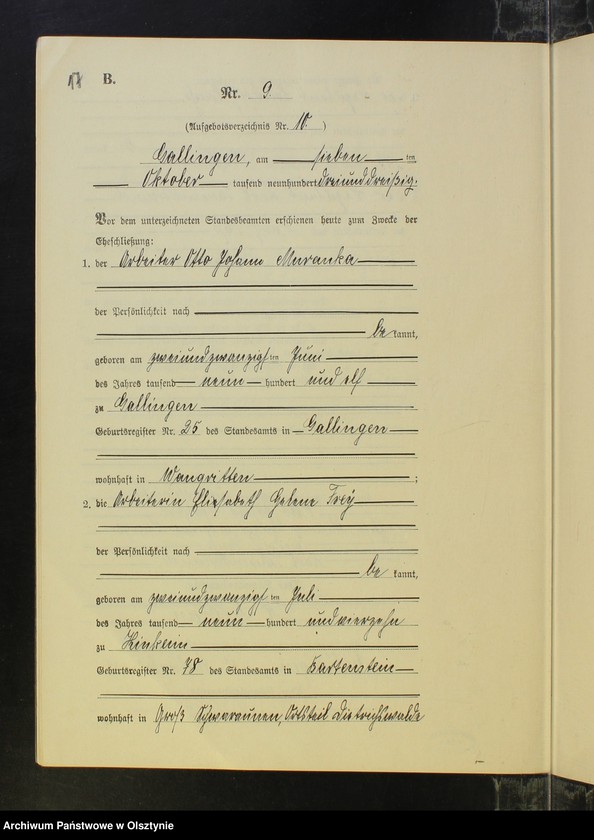 17 B.
Nr. 9.
(Aufgebotsverzeichnis Nr. 10. )
Gallingen, am sieben ten
Oktober tausend neunhundert dreiunddreißig.
Vor dem unterzeichneten Standesbeamten erschienen heute zum Zwecke der
Eheschließung:
1. der Arbeiter Otto Johann Muranka
der Persönlichkeit nach
be kannt,
geboren am zweiundzwanzigs ten Juni
des Jahres tausend neun hundert und elf
zu Gallingen
Geburtsregister Nr. 25 des Standesamts in Gallingen
wohnhaft in Wangritten ;
2. die Arbeiterin Elisabeth Helene Frey
der Persönlichkeit nach
be kannt,
geboren am zweiundzwanzigs ten Juli
des Jahres tausend neun hundert und vierzehn
zu
Geburtsregister Nr. 78 des Standesamts in Bartenstein
wohnhaft in Groß Schwaraunen, Ortsteil Dietrichswalde
Archiwum Państwowe w Olsztynie